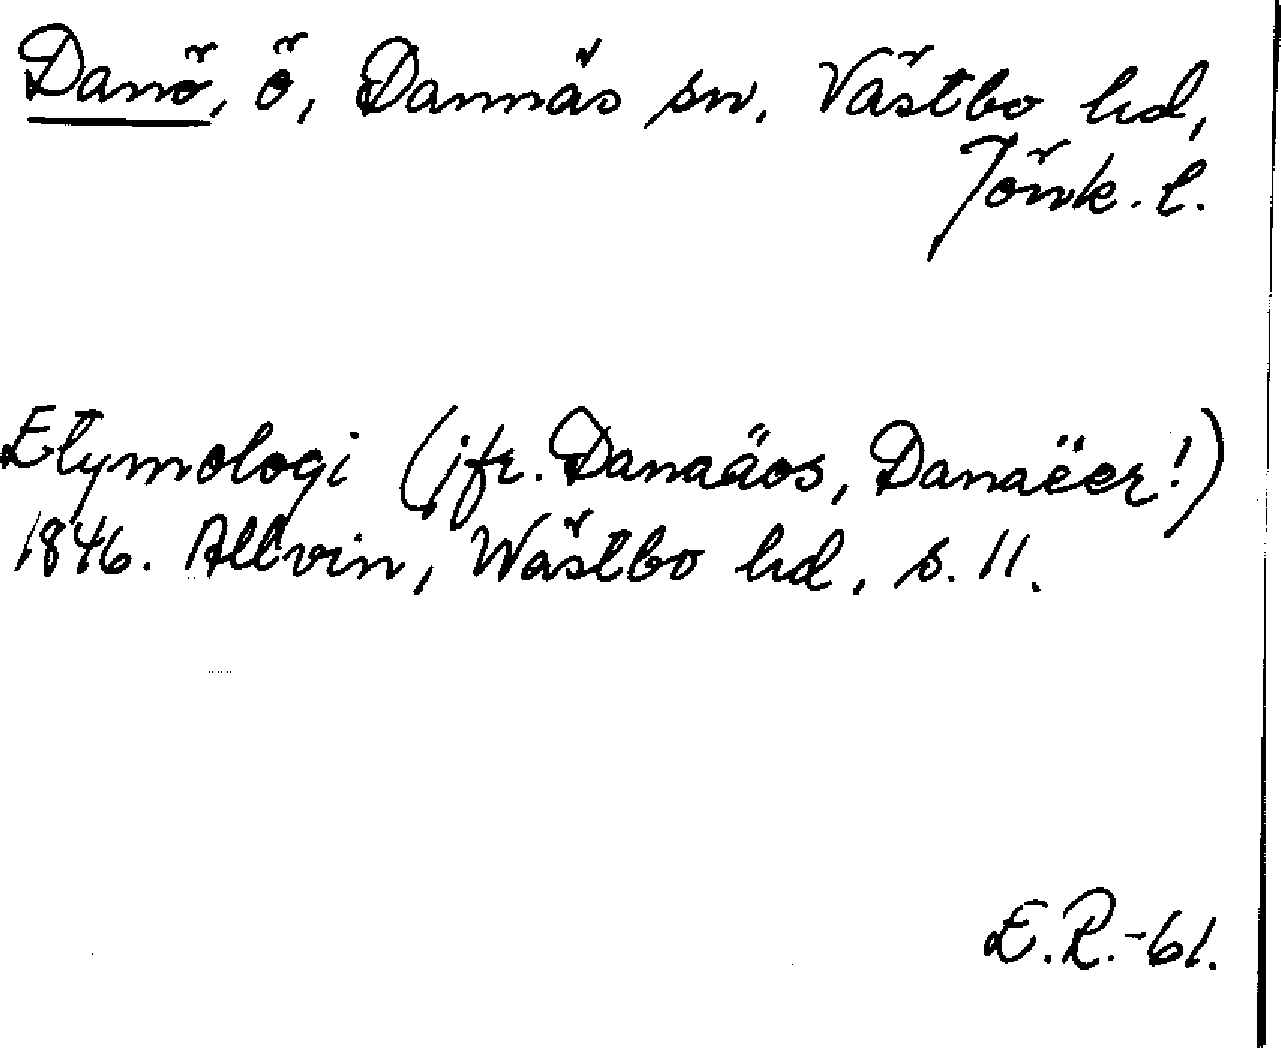 Danö, ö, Dannäs sn. Västbo hd,
Jönk. l.
Etymologi (jfr. Danaäos, Danaëer!)
1846. Allvin, Wästbo hd, s. 11.
E.R.-61.